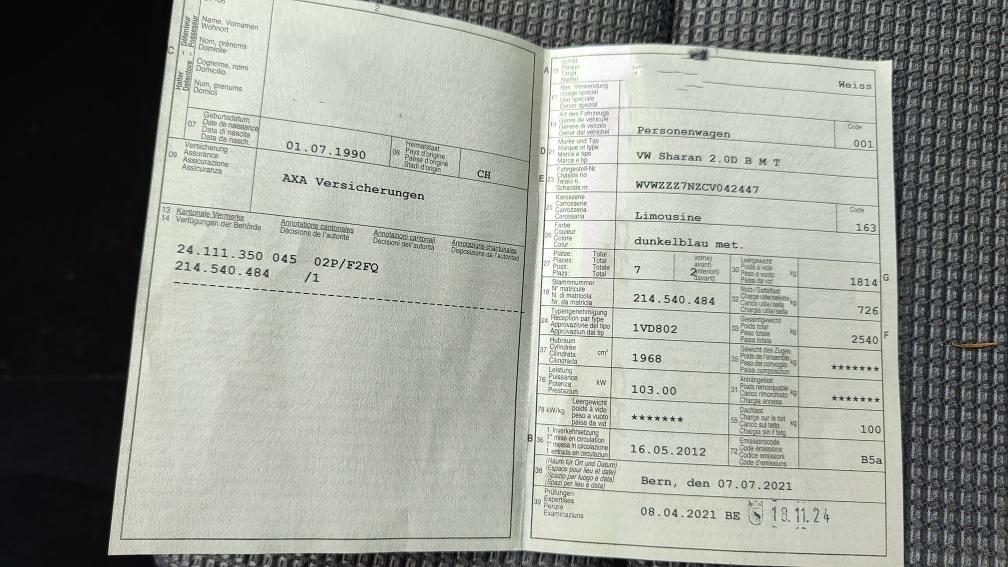 C
Halter
Détenteur
Detentore
Possessur
Name, Vornamen
Wohnort
Nom, prénoms
Domicile
Cognome, nomi
Domicilio
Num, prenums
Domicil
07
Geburtsdatum
Date de naissance
Data di nascita
Data da nasch.
01.07.1990
08
Heimatstaat
Pays d'origine
Paese d'origine
Stadi d'origin
CH
09
Versicherung
Assurance
Assicurazione
Assicuranza
AXA Versicherungen
13 Kantonale Vermerke
14 Verfügungen der Behörde
Annotations cantonales
Décisions de l'autorité
Annotazioni cantonali
Decisioni dell'autorità
Annotaziuns chantunalas
Disposiziuns da l'autoritad
24.111.350 045 02P/F2FQ
214.540.484 /1
2
3
A
Schild
Plaque
Targa
Numer
Weiss
Bes. Verwendung
Usage spécial
Uso speciale
Diever spezial
19
Art des Fahrzeugs
Genre de véhicule
Genere di veicolo
Gener dal vehichel
Personenwagen
Code
001
D
21
Marke und Typ
Marque et type
Marca e tipo
Marca e tip
VW Sharan 2.0D B M T
E
23
Fahrgestell-Nr.
Châssis no
Telaio n.
Schassis nr.
WVWZZZ7NZCV042447
25
Karosserie
Carrosserie
Carrozzeria
Carossaria
Limousine
Code
163
26
Farbe
Couleur
Colore
Colur
dunkelblau met.
27
Plätze: Total
Places: Total
Posti: Totale
Plazs: Total
7
vorne)
avant)
2
anteriori)
davant)
30
Leergewicht
Poids à vide
Peso a vuoto
Paisa da vid
kg
1814
G
18
Stammnummer
N° matricule
N. di matricola
Nr. da matricla
214.540.484
32
Nutz-/Sattellast
Charge utile/sellette
Carico utile/sella
Chargia utila/sella
kg
726
24
Typengenehmigung
Réception par type
Approvazione del tipo
Approvaziun dal tip
1VD802
33
Gesamtgewicht
Poids total
Peso totale
Paisa totala
kg
2540
F
37
Hubraum
Cylindrée
Cilindrata
Cilindrada
cm³
1968
35
Gewicht des Zuges
Poids de l'ensemble
Peso del convoglio
Paisa cumposiziun
kg
*******
76
Leistung
Puissance
Potenza
Prestaziun
kW
103.00
31
Anhängelast
Poids remorquable
Carico rimorchiato
Chargia annexa
kg
*******
78 kW/kg
Leergewicht
poids à vide
peso a vuoto
paisa da vid
*******
55
Dachlast
Charge sur le toit
Carico sul tetto
Chargia sin il tetg
kg
100
B
36
1. Inverkehrsetzung
1re mise en circulation
1a messa in circolazione
1. entrada en circulaziun
16.05.2012
72
Emissionscode
Code émissions
Codice emissioni
Code d'emissiuns
B5a
38
(Raum für Ort und Datum)
(Espace pour lieu et date)
(Spazio per luogo e data)
(Spazi per lieu e data)
Bern, den 07.07.2021
39
Prüfungen
Expertises
Perizie
Examinaziuns
08.04.2021 BE